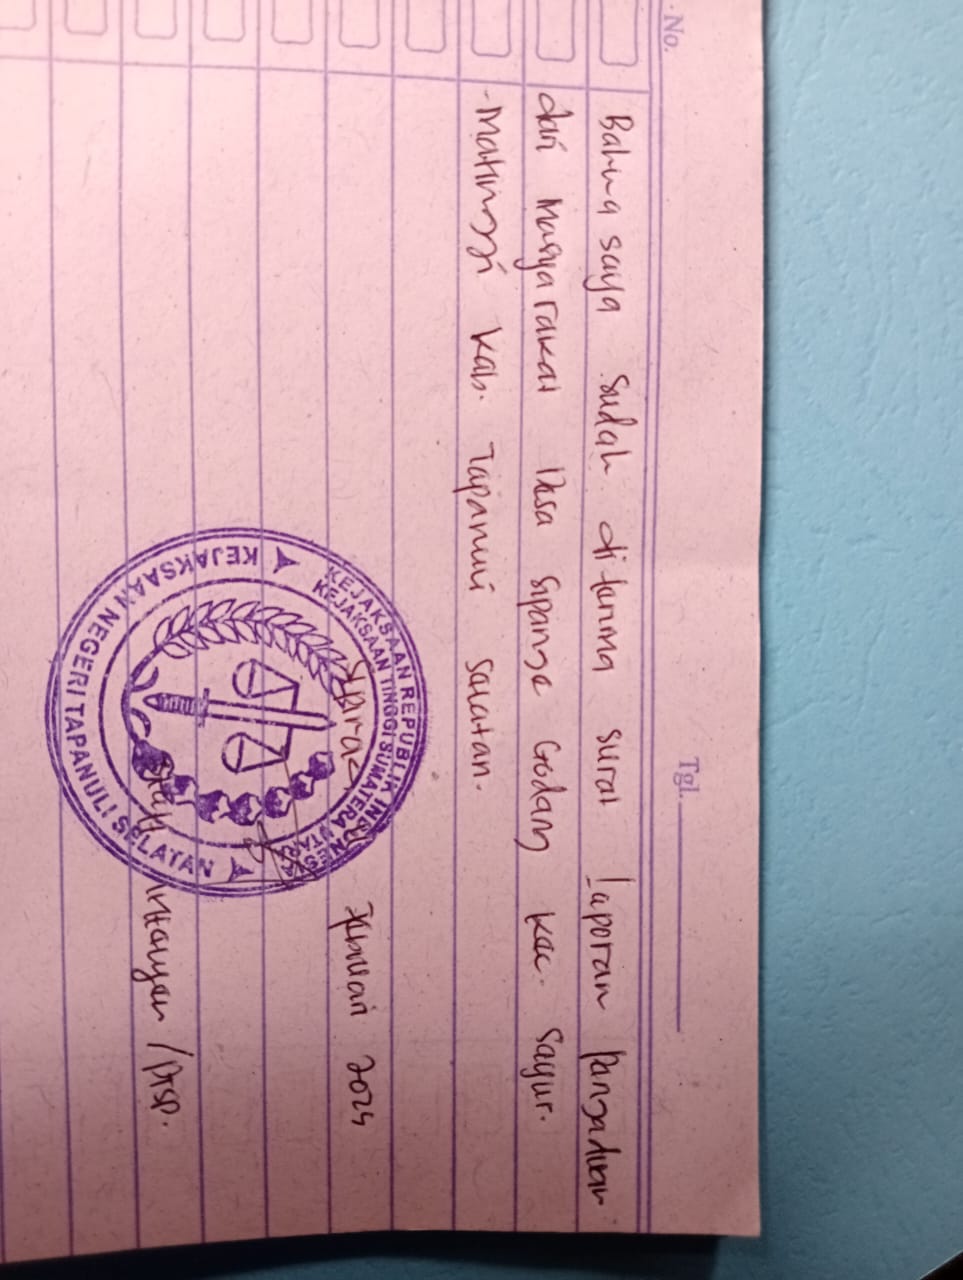 No.
Tgl.
Bahwa saya sudah diterima surat Laporan Pangaduan
dari Masyarakat Desa Sipange Godang Kec. Sayur.
-Matinggi Kab. Tapanuli Selatan.
Februari 2025
/PTSP.
KEJAKSAAN REPUBLIK INDONESIA
KEJAKSAAN TINGGI SUMATERA UTARA
KEJAKSAAN NEGERI TAPANULI SELATAN